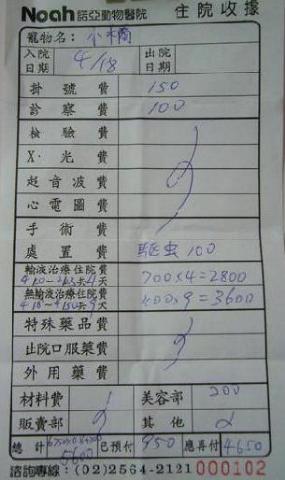 Noah 諾亞動物醫院 住院收據
寵物名：小
入院日期 4/18 出院日期
掛號費 150
診察費 100
檢驗費
X·光費
超音波費
心電圖費
手術費
處置費 驅虫 100
輸液治療住院費 天 700×4=2800
無輸液治療住院費 天 400×9=3600
特殊藥品費
出院口服藥費
外用藥費
材料費 美容部 200
販賣部 其他
總計 5600 已預付 950 應再付 4650
諮詢專線：(02)2564-2121 000102